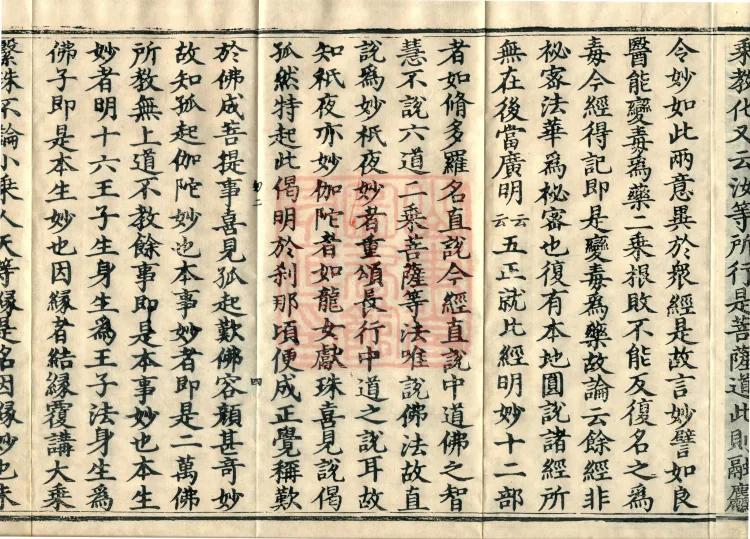 乘教化又云汝等所行是菩薩道此則融麤
令妙如此兩意異於衆經是故言妙譬如良
醫能變毒爲藥二乘根敗不能反復名之爲
毒今經得記即是變毒爲藥故論云餘經非
祕密法華爲祕密也復有本地圓說諸經所
無在後當廣明云云五正就此經明妙十二部
者如脩多羅名直說今經直說中道佛之智
慧不說六道二乘菩薩等法唯說佛法故直
說爲妙祇夜妙者重頌長行中道之說耳故
知祇夜亦妙伽陀者如龍女獻珠喜見說偈
孤然特起此偈明於刹那頃便成正覺稱歎
於佛成菩提事喜見孤起歎佛容顏甚奇妙
故知孤起伽陀妙也本事妙者即是二萬佛
所教無上道不教餘事即是本事妙也本生
妙者明十六王子生身生爲王子法身生爲
佛子即是本生妙也因緣者結緣覆講大乘
繫珠不論小乘人天等緣是名因緣妙也未